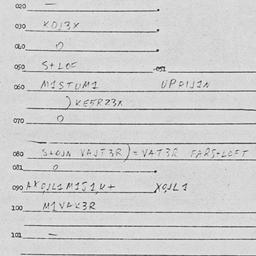 020 —
030 XOJ3X
040 0
050 S+LOF 051
060 M1STUM1 UPO1J1N
)KE5RZ3X
070 0
080 S+OJN VAJT3R) = VAT3R FARS+LOFT
081 0
090 AXOJL1M1S1M+ XOJL1
100 M1VAK3R
101 —